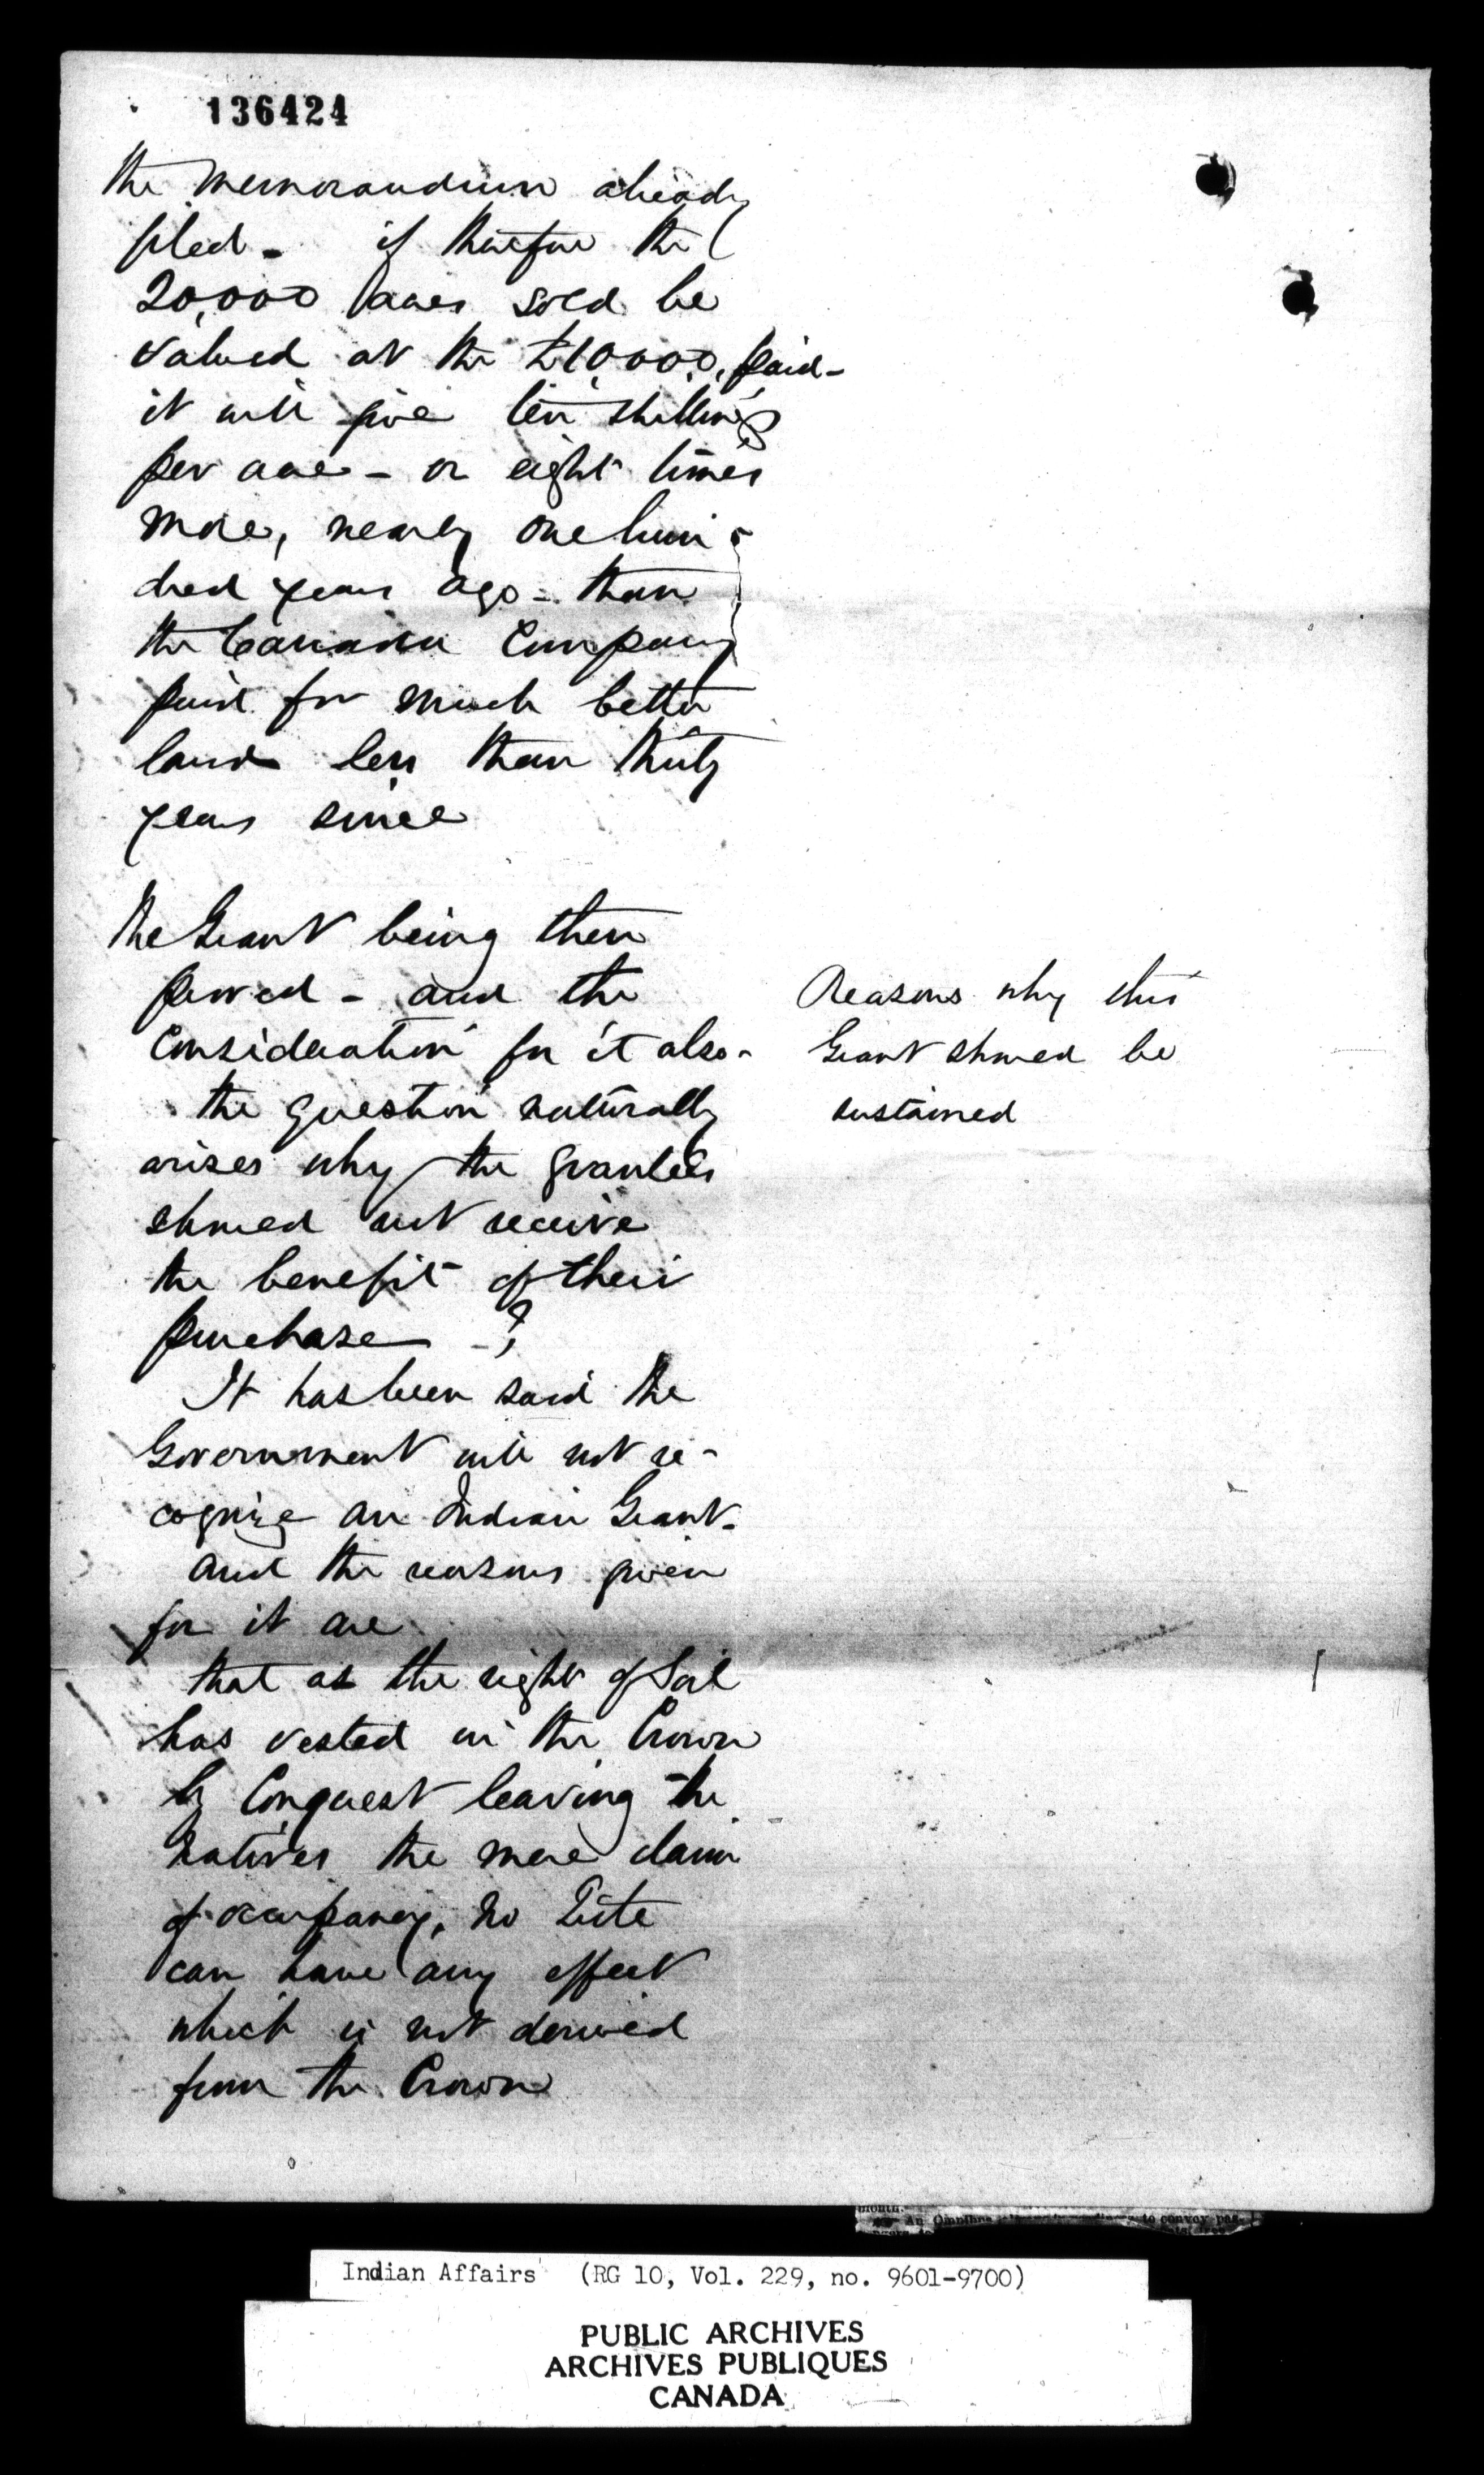 136424
the memorandum already
filed - if therefore the
20,000 acres sold be
valued at the £10,000, paid -
it will give ten shillings
per acre - or eight times
more, nearly one hun-
dred years ago - than
the Canada Company
paid for much better
land less than thirty
years since
The Grant being then
proved - and the
Consideration for it also -
the question naturally
arises why the grantees
should not receive
the benefit of their
purchase - ?
Reasons why this
Grant should be
sustained
It has been said the
Government will not re-
cognize an Indian Grant -
and the reasons given
for it are
that as the right of Soil
has vested in the Crown
by Conquest leaving the
Natives the mere claim
of occupancy, no Title
can have any effect
which is not derived
from the Crown
month.
An Omnibus to convey pas-
Indian Affairs (RG 10, Vol. 229, no. 9601-9700)
PUBLIC ARCHIVES
ARCHIVES PUBLIQUES
CANADA